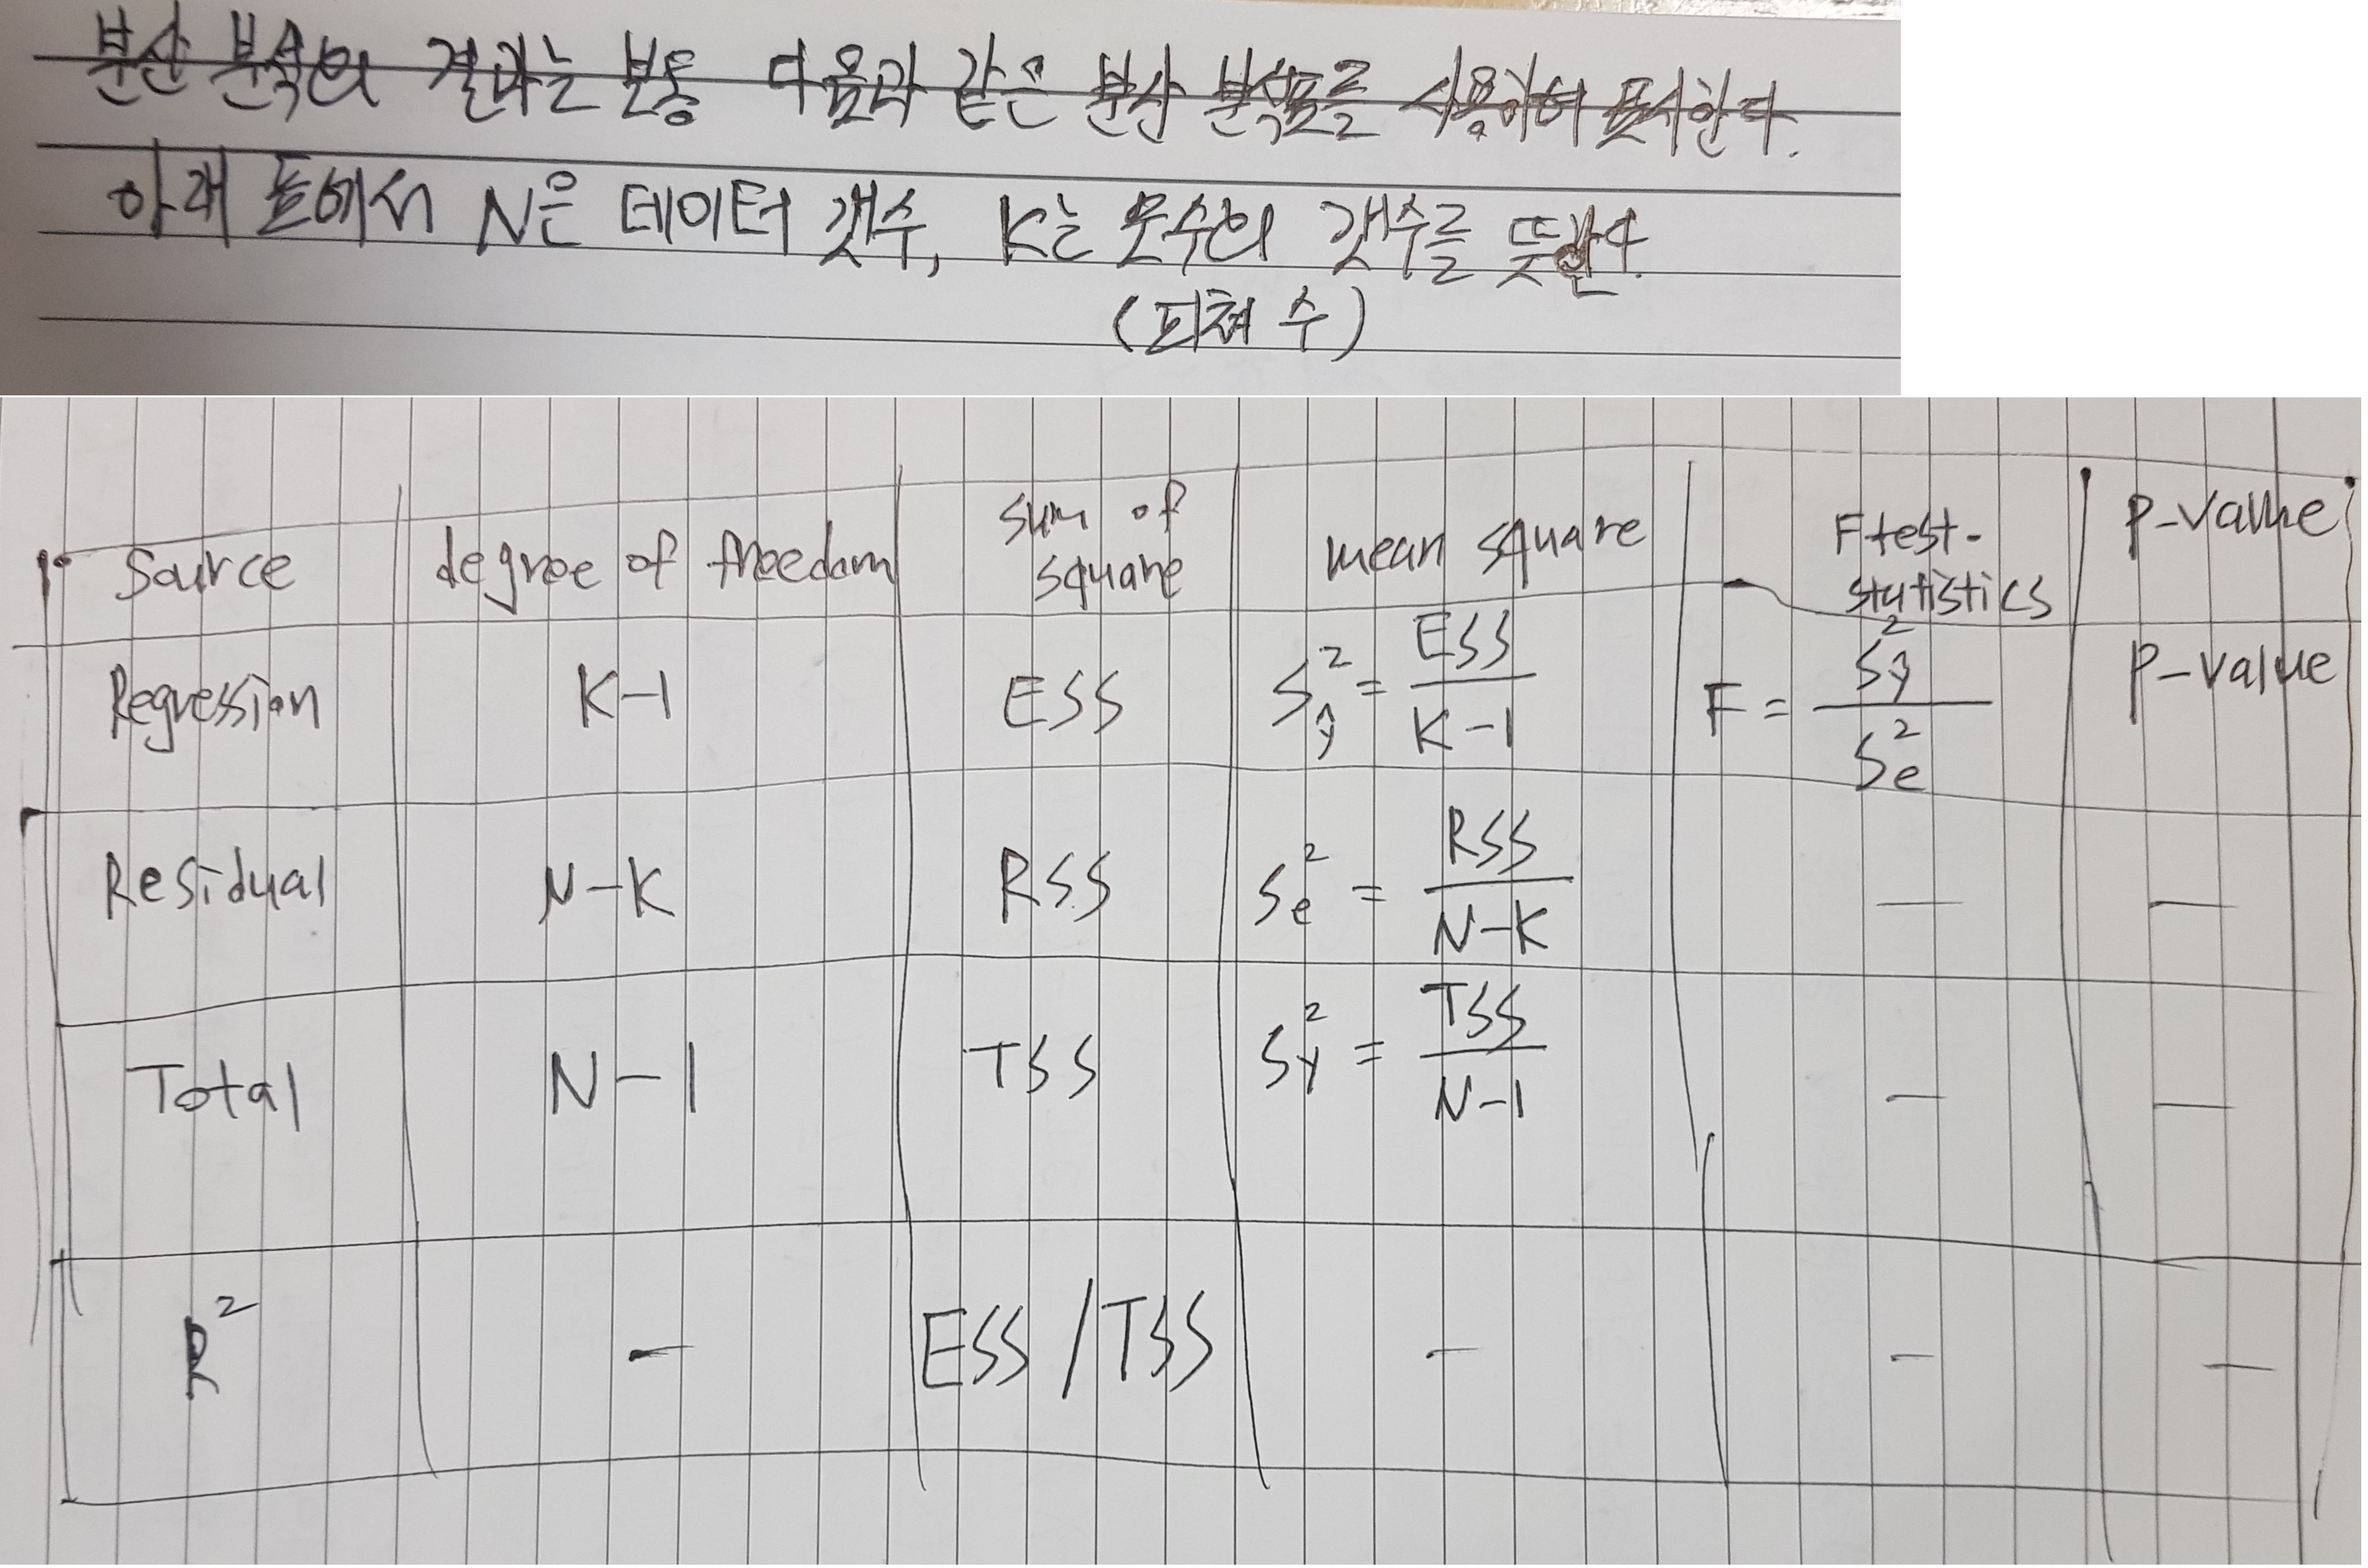 분산 분석의 결과는 보통 다음과 같은 분산 분석표를 사용하여 표시한다.
아래 표에서 N은 데이터 갯수, K는 모수의 갯수를 뜻한다.
(피쳐 수)
Source | degree of freedom | sum of square | mean square | F test-statistics | P-value
Regression | K-1 | ESS | S²_ŷ = ESS / K-1 | F = S²_ŷ / S²_e | P-value
Residual | N-K | RSS | S²_e = RSS / N-K | — | —
Total | N-1 | TSS | S²_y = TSS / N-1 | — | —
R² | - | ESS / TSS | - | - | —